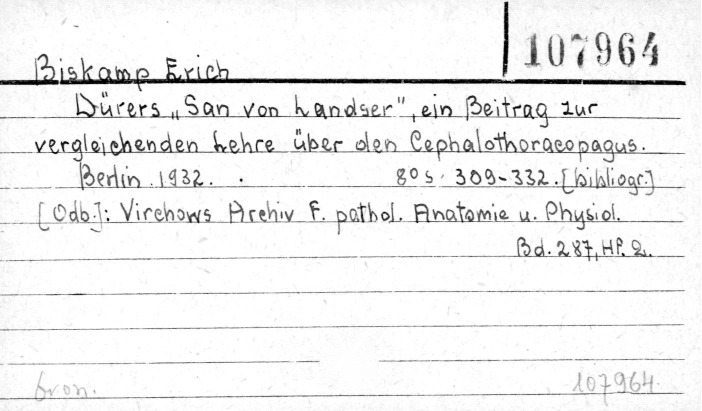 107964
Biskamp Erich
Dürers „San von Landser", ein Beitrag zur
vergleichenden Lehre über den Cephalothoracopagus.
Berlin 1932. 8° s. 309-332. [bibliogr.]
[Odb.]: Virchows Archiv f. pathol. Anatomie u. Physiol.
Bd. 287, Hf. 2.
bron. 107964